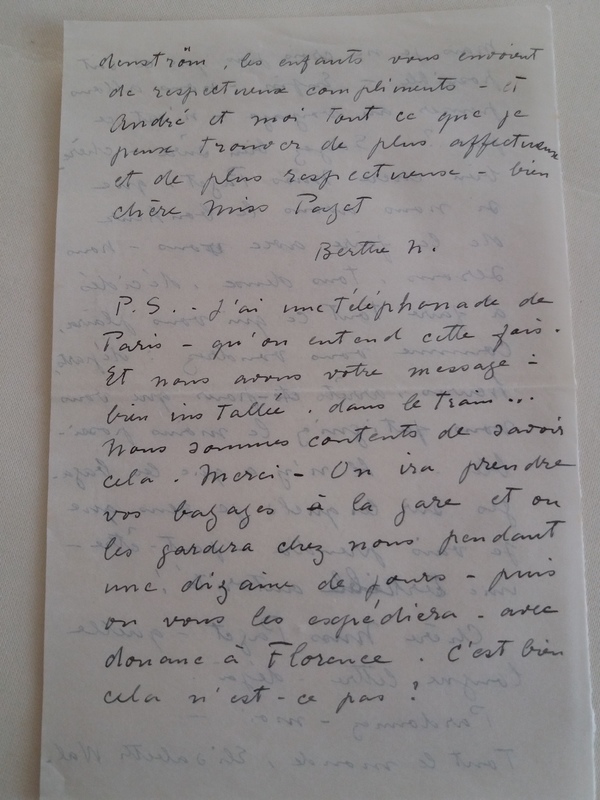 denström, les enfants vous envoient
de respectueux compliments - et
André et moi tout ce que je
peux trouver de plus affectueux
et de plus respectueux - bien
chère Miss Paget
Berthe N.
P.S. - J'ai une téléphonade de
Paris - qu'on entend cette fois.
Et nous avons votre message :
bien installée, dans le train...
Nous sommes contents de savoir
cela. Merci - On ira prendre
vos bagages à la gare et on
les gardera chez nous pendant
une dizaine de jours - puis
on vous les expédiera - avec
douane à Florence. C'est bien
cela n'est-ce pas ?